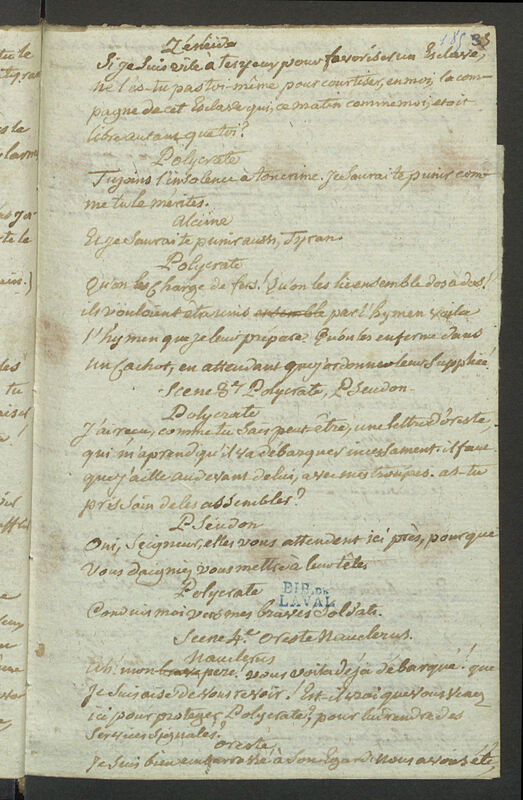 185 33
Zénéide
Si je suis vile a tes yeux pour favoriser un Esclave,
ne l'es-tu pas toi même, pour courtiser, en moi, la com-
pagne de cet Esclave qui, ce matin comme moi, etoit
libre autant que toi?
Polycrate
Tu joins l'insolence à ton crime. Je saurai te punir com-
me tu le merites.
Alcime
Et je saurai te punir aussi, Tyran.
Polycrate
Qu'on les charge de fers! Qu'on les lie ensemble dos à dos!
ils vouloient etre unis ensemble par l'hymen voila
l'hymen que je leur prépare. Qu'on les enferme dans
un Cachot, en attendant que j'ordonne leur supplice
Scene 3e. Polycrate, Pseudon.
Polycrate
J'ai recu, comme tu sais peut être, une lettre d'oreste
qui m'aprend qu'il va débarquer incessament. il faut
que j'aille au devant de lui, avec mes troupes. as-tu
pris soin de les assembler?
Pseudon
Oui, Seigneur, elles vous attendent ici près, pour que
vous daigniez vous mettre à leur tête.
Polycrate
Conduis moi vers mes braves soldats.
BIB. DE
LAVAL
Scene 4e. Oreste Nauclerus.
Nauclerus
Ah! mon pere. vous voila déjà débarqué! que
je suis aise de vous revoir! Est-il vrai que vous venez
ici pour proteger Polycrate, pour lui rendre des
services signalés?
Oreste
Je suis bien embarrassé à son égard. nous avons été